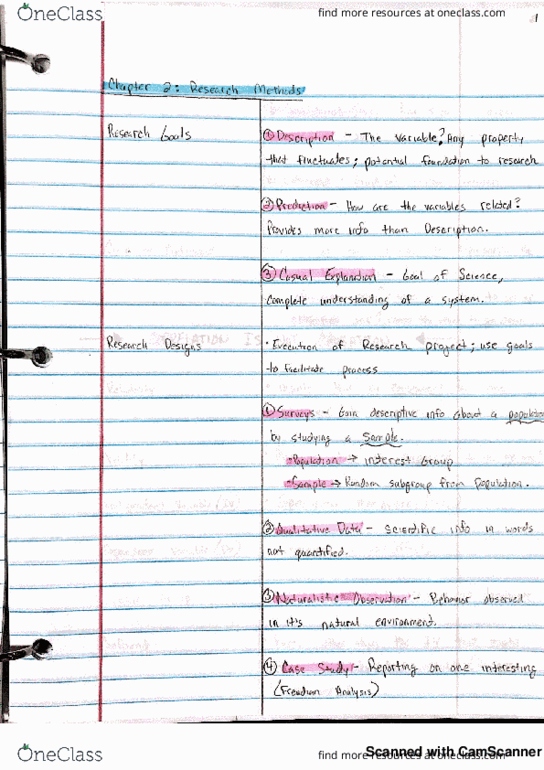 OneClass
find more resources at oneclass.com
1
Chapter 2: Research Methods
Research Goals
① Description - The variable? Any property
that fluctuates; potential foundation to research
② Prediction - How are the variables related?
Provides more info than Description.
③ Casual Explanation - Goal of Science,
complete understanding of a system.
Research Designs
· Execution of Research project; use goals
to facilitate process
① Surveys - Gain descriptive info about a population
by studying a Sample.
-Population → interest Group
-Sample → Random subgroup from population.
② Qualitative Data - Scientific info in words
not quantified.
③ Naturalistic Observation - Behavior observed
in it's natural environment.
④ Case Study - Reporting on one interesting
(Freudian Analysis)
OneClass
find more resources at oneclass.com
Scanned with CamScanner